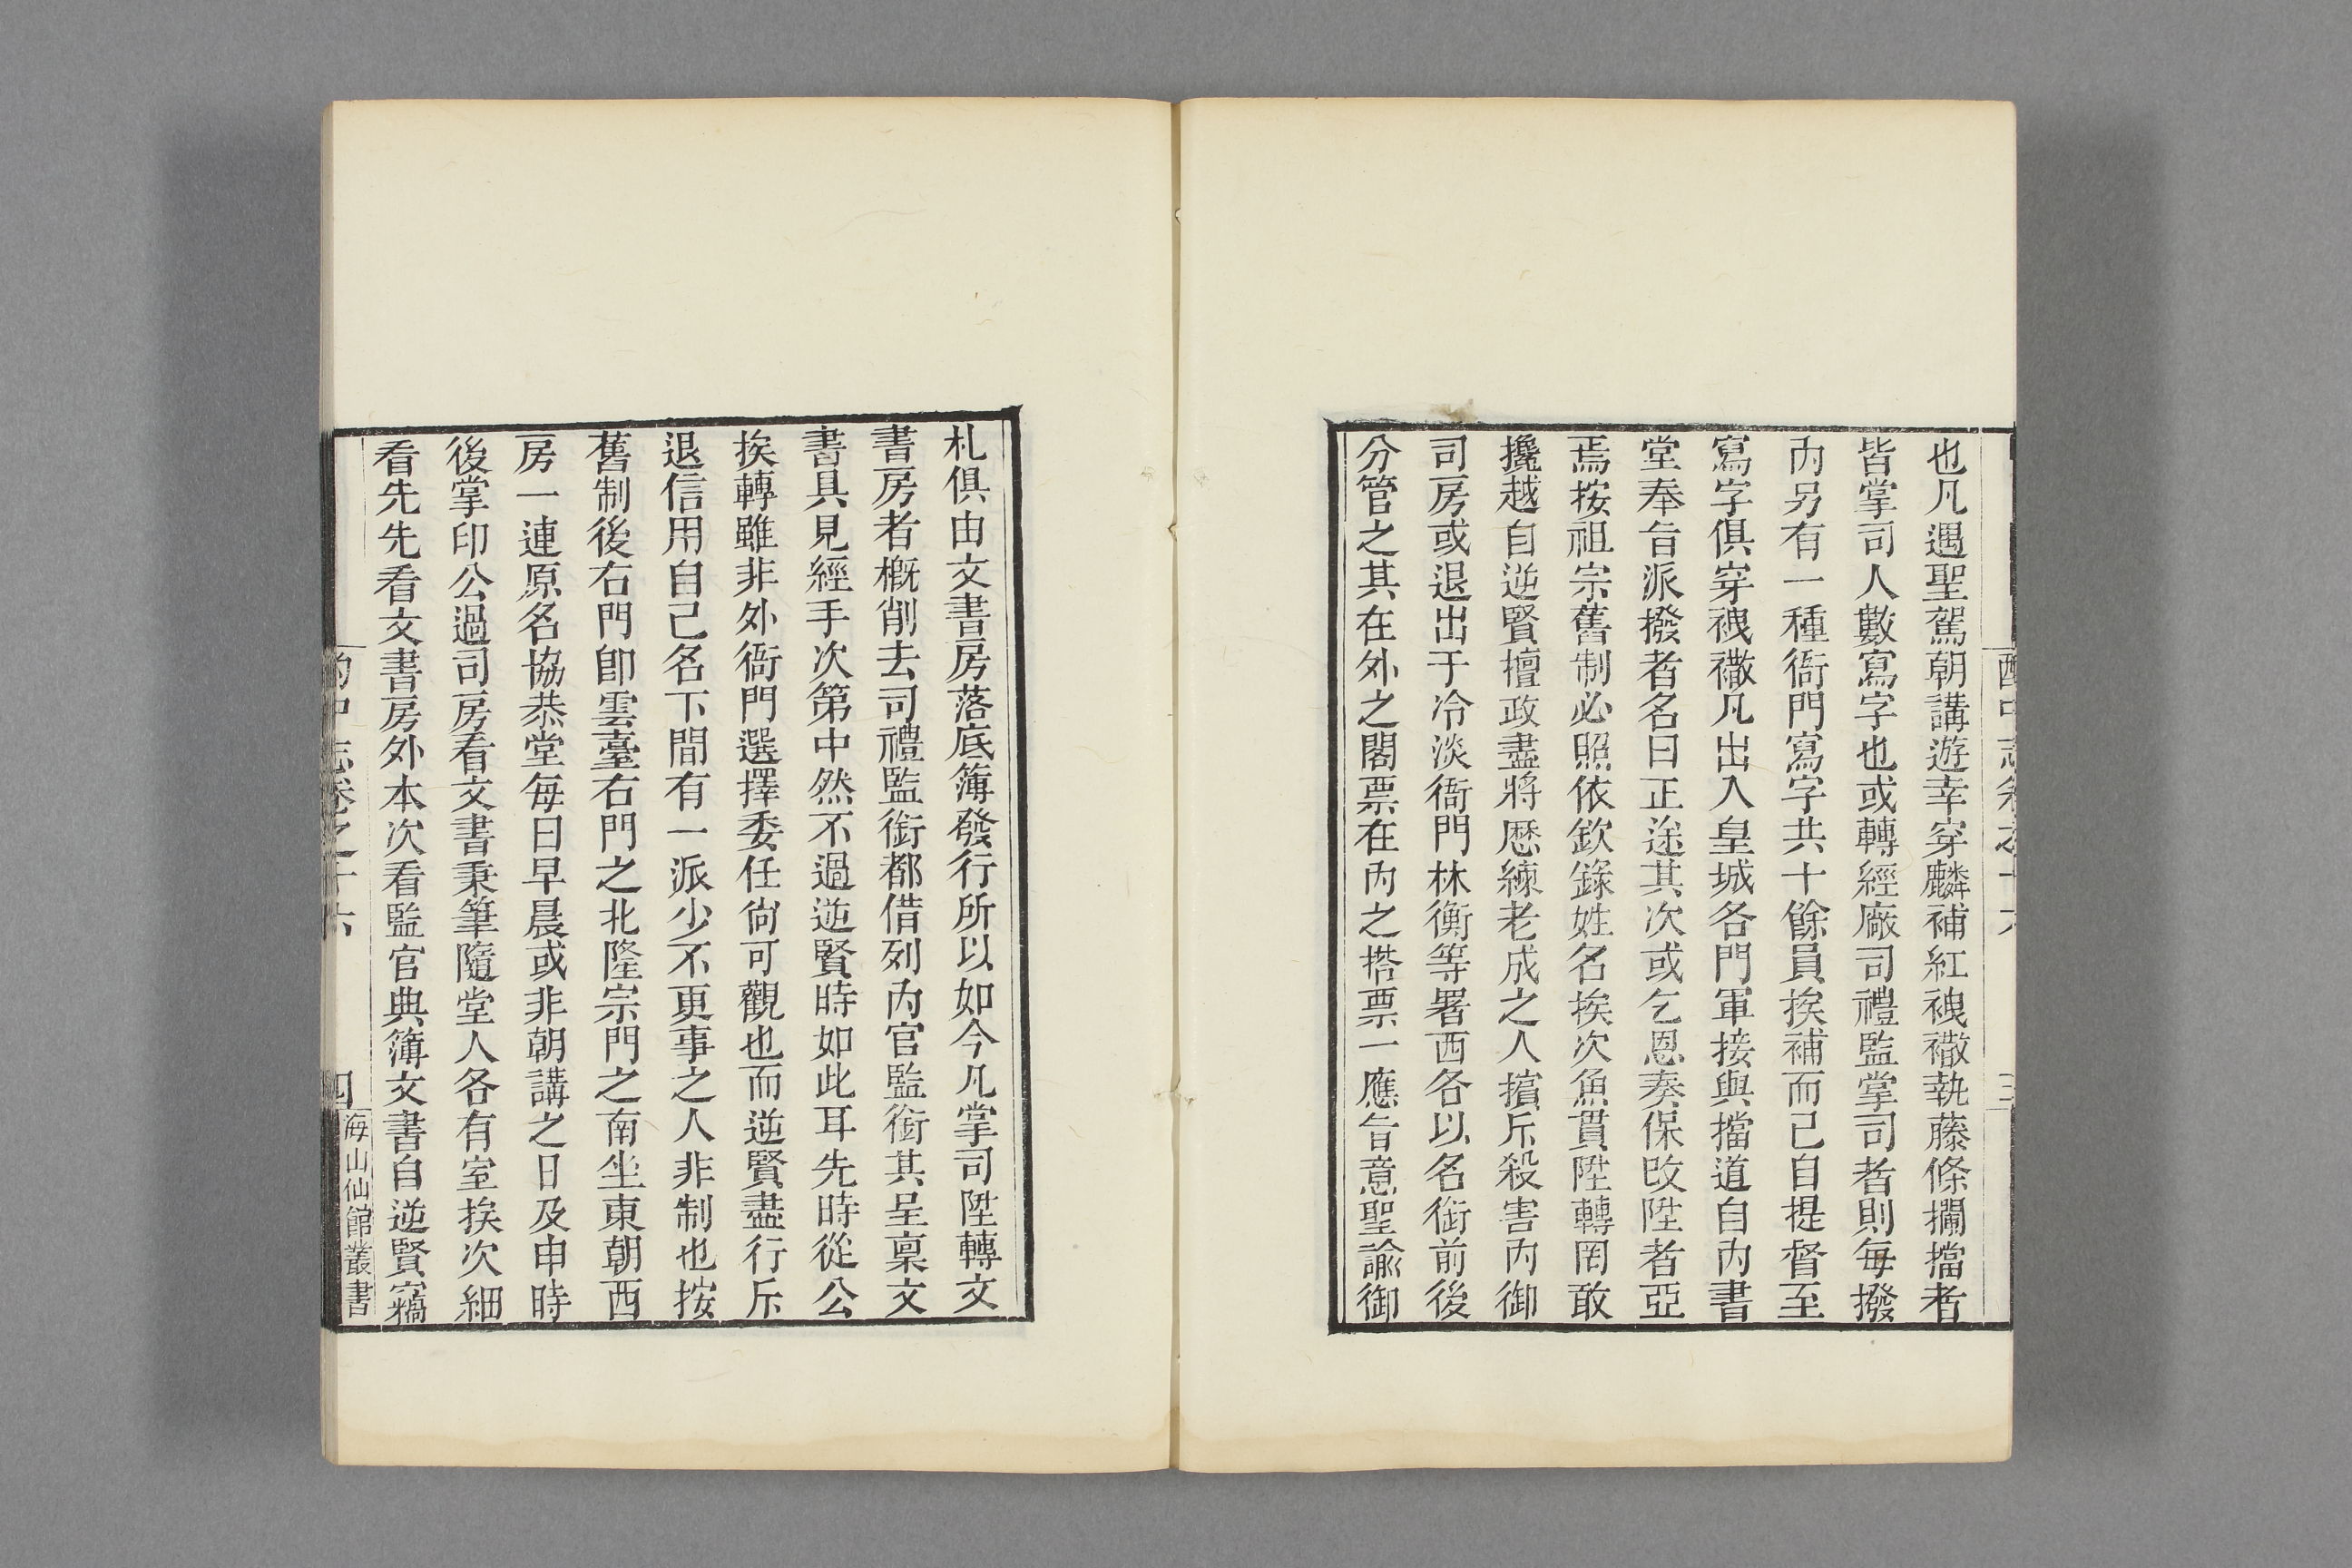 也凡遇聖駕朝講遊幸穿麟補紅𧜵䙓執藤條攔擋者
皆掌司人數寫字也或轉經廠司禮監掌司者則每撥
內另有一種衙門寫字共十餘員挨補而已自提督至
寫字俱穿𧜵䙓凡出入皇城各門軍接與擋道自內書
堂奉旨派撥者名曰正途其次或乞恩奏保改陞者亞
焉按祖宗舊制必照依欽錄姓名挨次魚貫陞轉罔敢
攙越自逆賢擅政盡將歷練老成之人擯斥殺害內御
司房或退出于冷淡衙門林衡等署西各以名銜前後
分管之其在外之閣票在內之搭票一應旨意聖諭御
酌中志卷之十六
三
札俱由文書房落底簿發行所以如今凡掌司陞轉文
書房者槪削去司禮監銜都借列內官監銜其呈稟文
書具見經手次第中然不過逆賢時如此耳先時從公
挨轉雖非外衙門選擇委任尙可觀也而逆賢盡行斥
退信用自己名下間有一派少不更事之人非制也按
舊制後右門卽雲臺右門之北隆宗門之南坐東朝西
房一連原名協恭堂每日早晨或非朝講之日及申時
後掌印公過司房看文書秉筆隨堂人各有室挨次細
看先先看文書房外本次看監官典簿文書自逆賢竊
酌中志卷之十六
四
海山仙館叢書